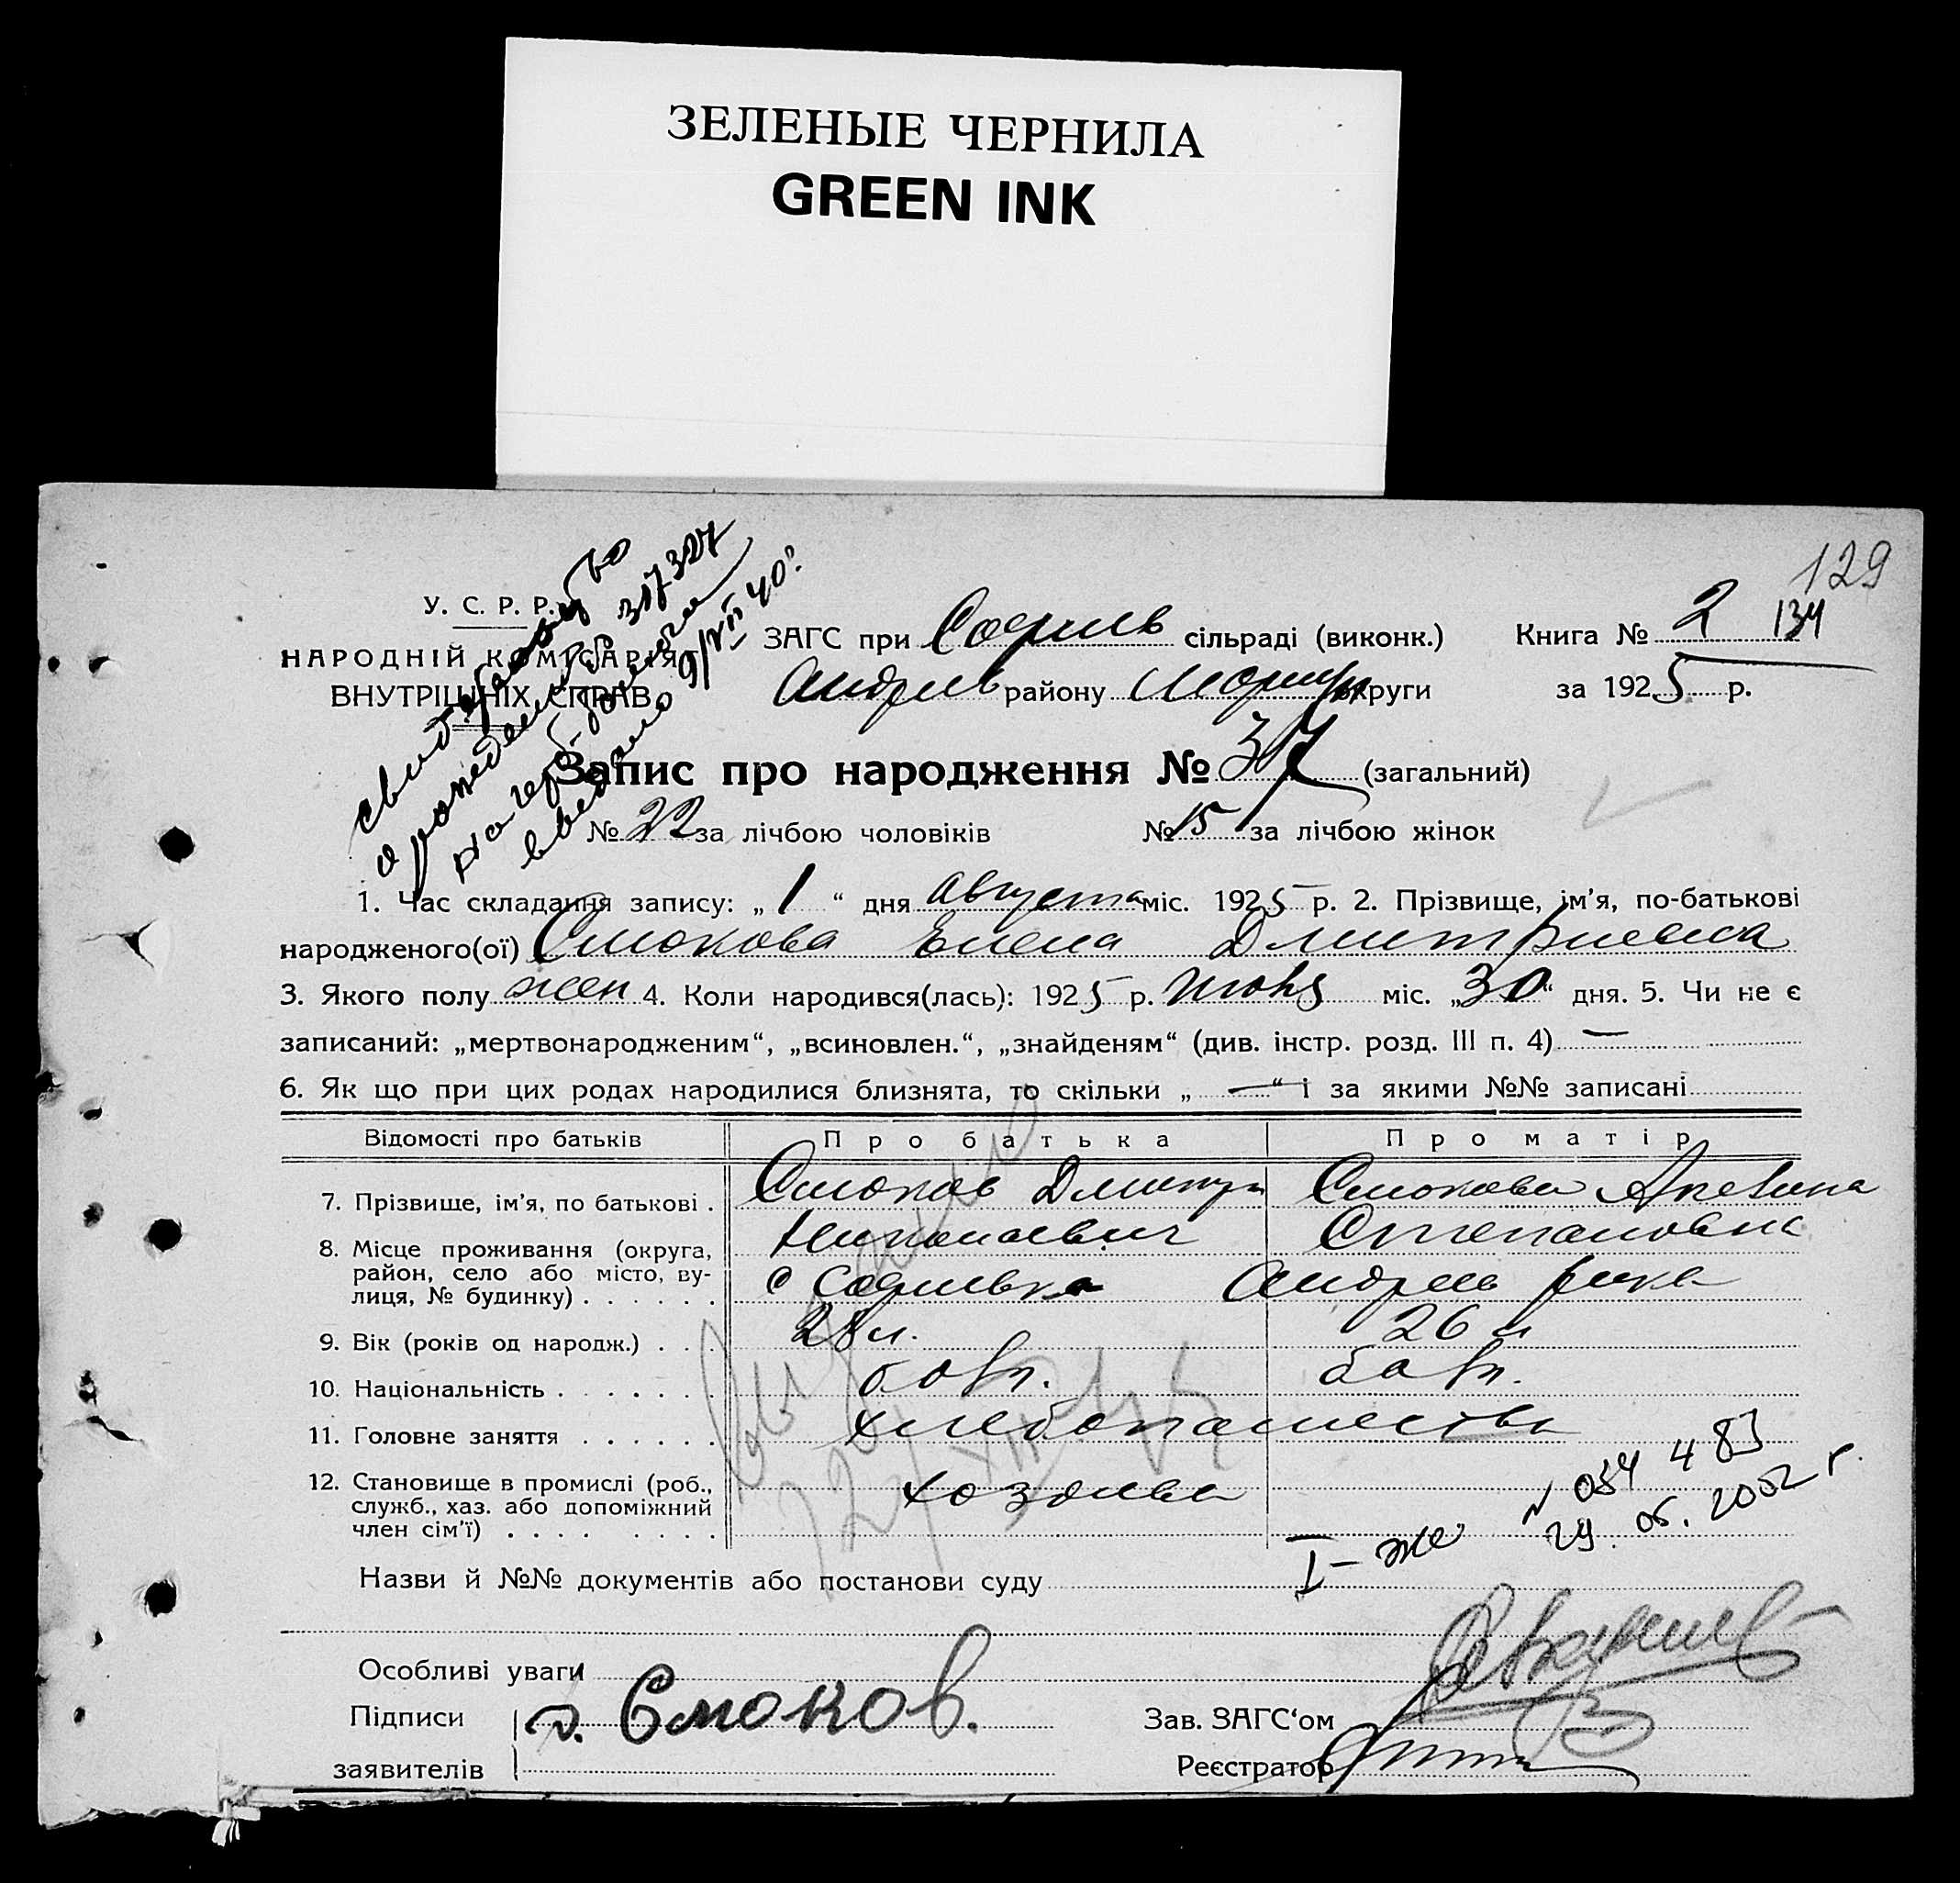 ЗЕЛЕНЫЕ ЧЕРНИЛА
GREEN INK
129
У. С. Р. Р.
НАРОДНІЙ КОМІСАРІЯТ
ВНУТРІШНІХ СПРАВ
свидетельство
о рождении
9/VII 40г
ЗАГС при Софиев сільраді (виконк.) Книга № 2 134
Андреев району Мариуп округи за 1925 р.
Запис про народження № 37 (загальний)
№ 22 за лічбою чоловіків № 15 за лічбою жінок
1. Час складання запису: „ 1 “ дня Августа міс. 1925 р. 2. Прізвище, ім'я, по-батькові
народженого(ої) Смокова Елена Дмитриевна
3. Якого полу жен 4. Коли народився(лась): 1925 р. Июня міс. „30“ дня. 5. Чи не є
записаний: „мертвонародженим“, „всиновлен.“, „знайденям“ (див. інстр. розд. III п. 4) —
6. Як що при цих родах народилися близнята, то скільки „ — “ і за якими №№ записані
Відомості про батьків Про батька Про матір
7. Прізвище, ім'я, по батькові . Смоков Дмитри Смокова
Николаевич Степановна
8. Місце проживання (округа,
район, село або місто, ву-
лиця, № будинку) . . . . . . с Софиевка Андреев р-на
9. Вік (років од народж.) . . . 28 л. 26 л
10. Національність . . . . . . . болг. болг.
11. Головне заняття . . . . . . хлебопашество
12. Становище в промислі (роб.,
служб., хаз. або допоміжний
член сім'ї) . . . . . . . . хозяева
I – же № 034 483
29. 05. 2002 г.
Назви й №№ документів або постанови суду
Особливі уваги
Підписи
заявителів Д. Смоков.
Зав. ЗАГС‘ом
Реєстратор